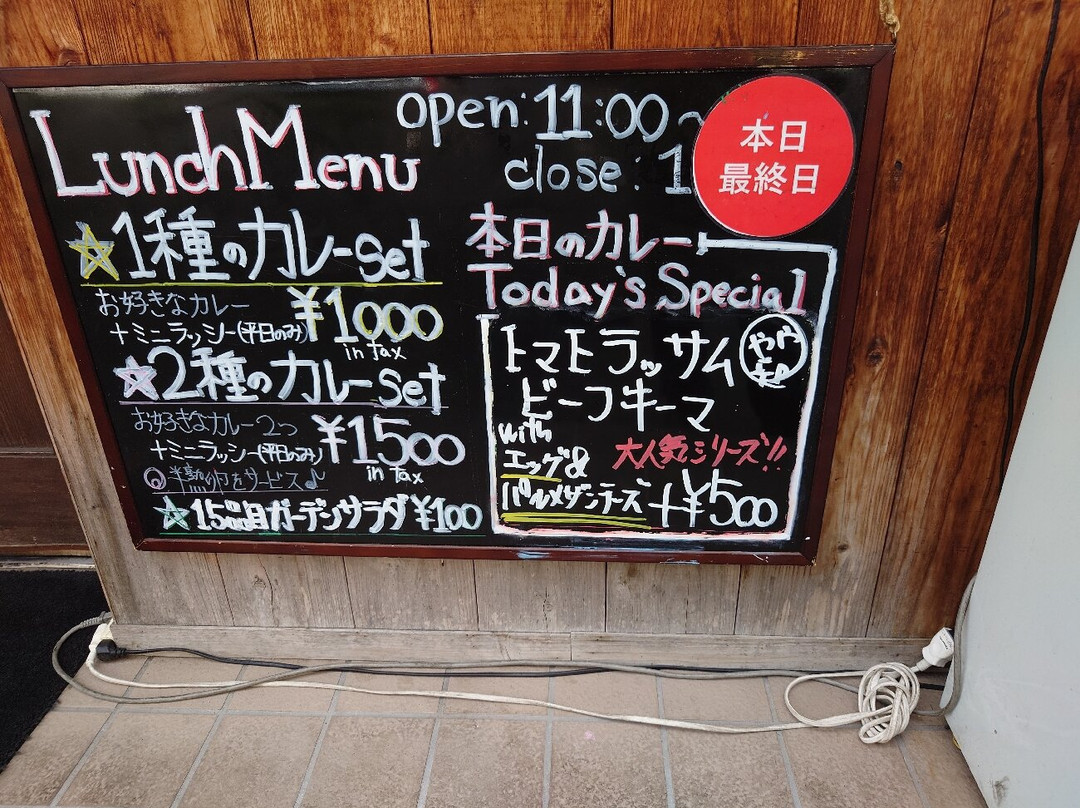 Lunch Menu
open: 11:00~
close: 1
本日
最終日
☆1種のカレーset
お好きなカレー
+ミニラッシー(平日のみ)
¥1000
in tax
☆2種のカレーset
お好きなカレー2つ
+ミニラッシー(平日のみ)
¥1500
in tax
◎半熟卵をサービス♪
☆15品目ガーデンサラダ¥100
本日のカレー
Today's Special
トマトラッサム
やや
ビーフキーマ
with
エッグ&
パルメザンチーズ
大人気シリーズ!!
+¥500